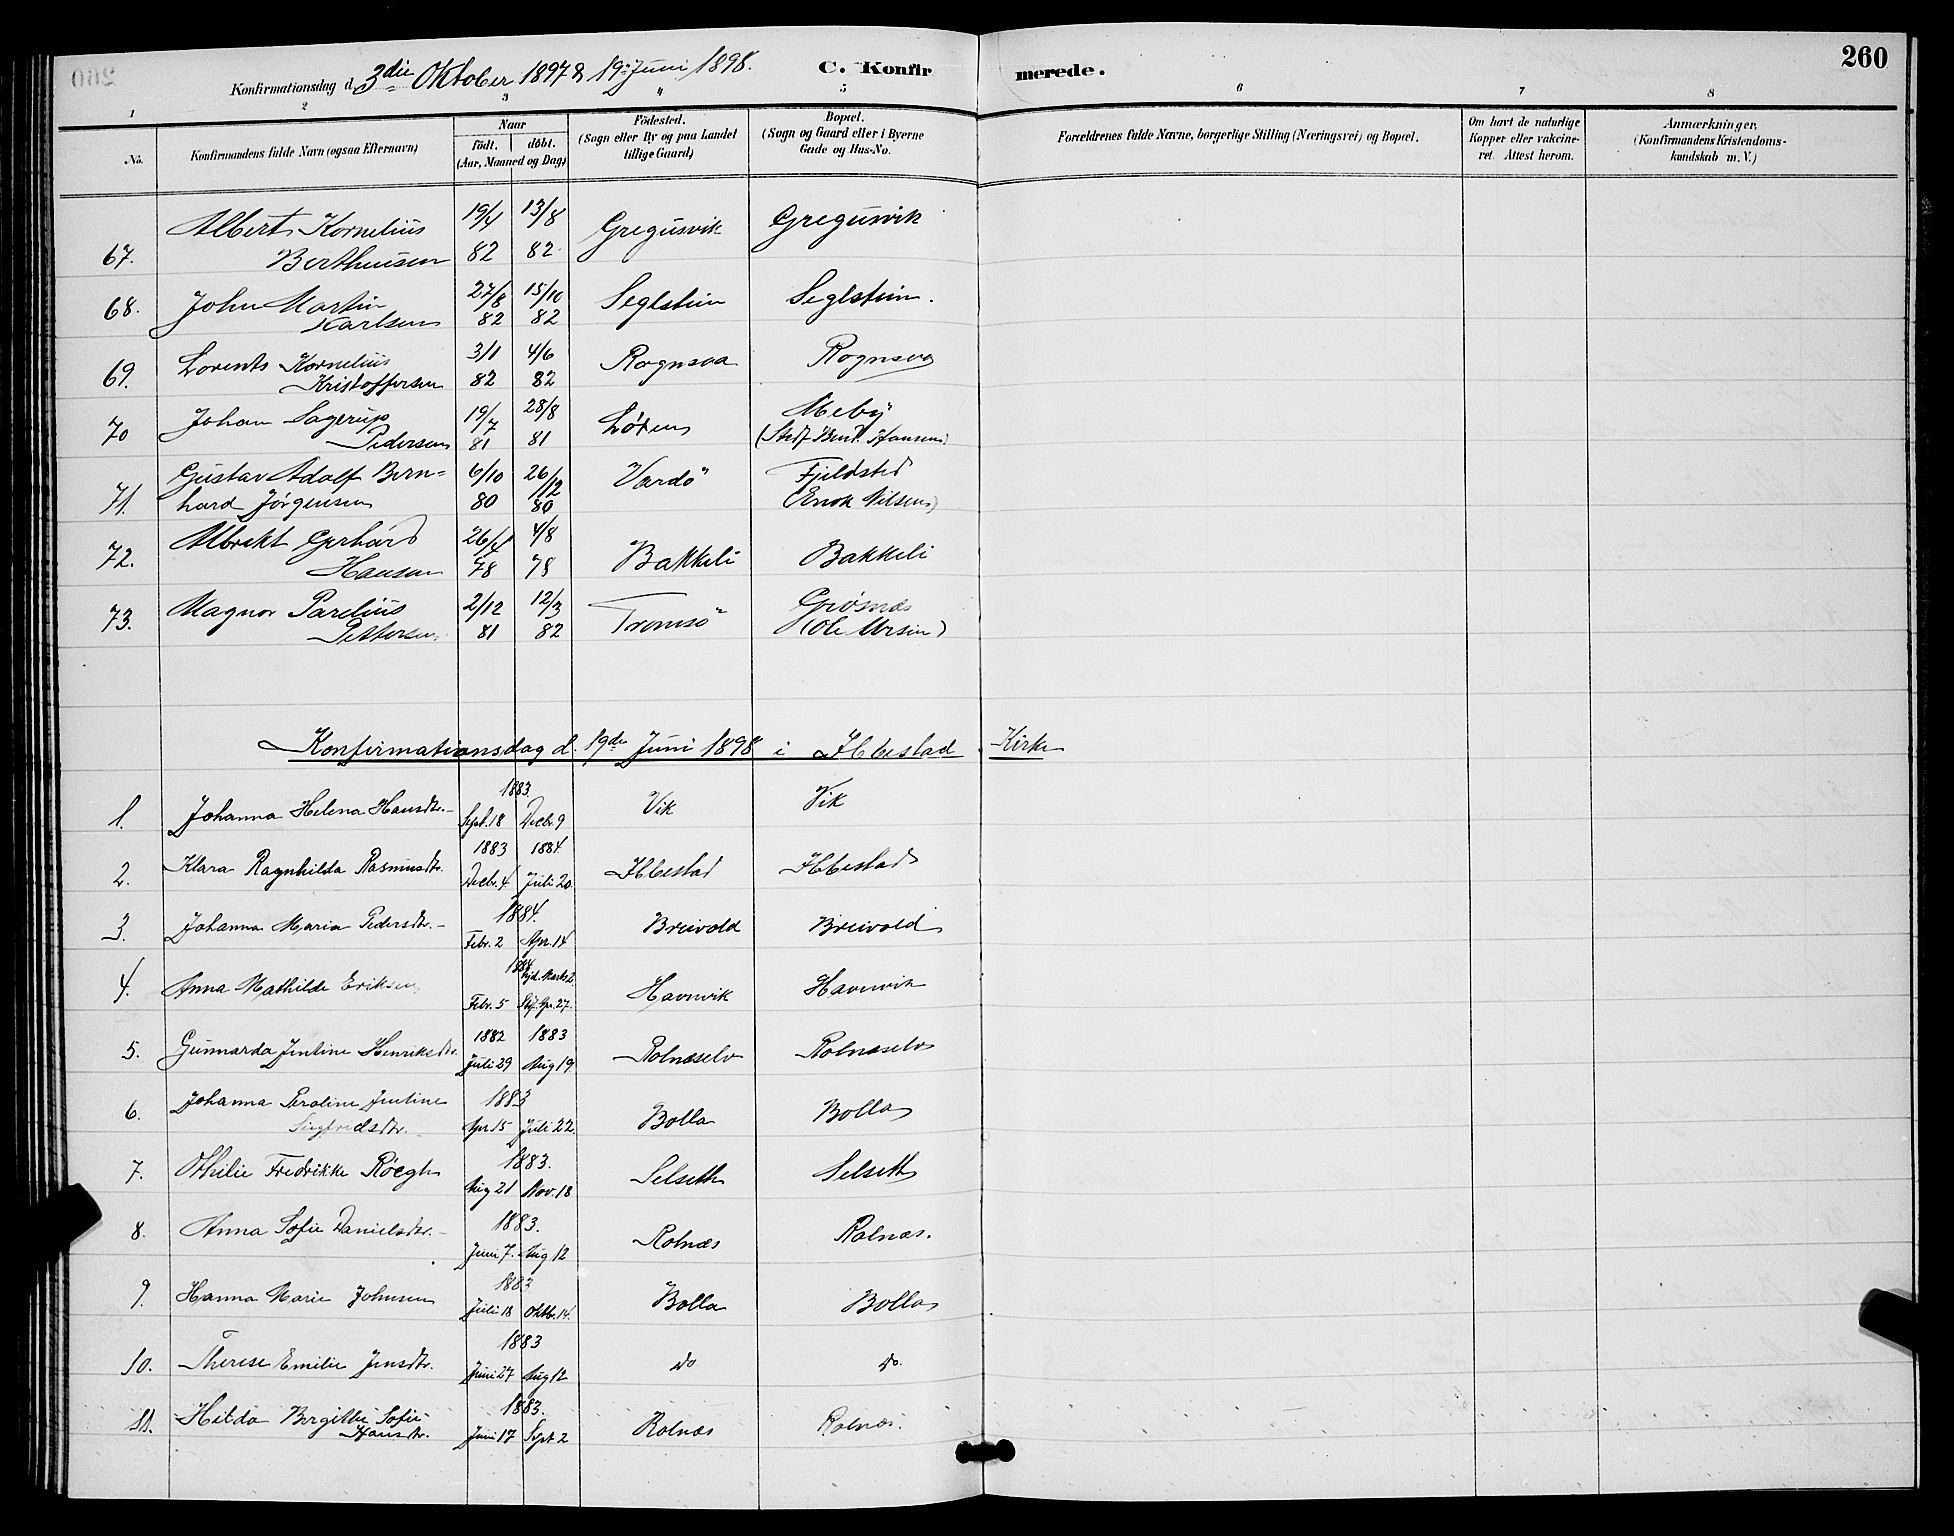 260
Konfirmationsdag d. 3die Oktober 1897 & 19. Juni 1898. C. Konfirmerede.
1 2 3 4 5 6 7 8
No.
Konfirmandens fulde Navn (ogsaa Efternavn)
Naar
födt. döbt.
(Aar, Maaned og Dag)
Födested.
(Sogn eller By og paa Landet
tillige Gaard)
Bopæl.
(Sogn og Gaard eller i Byerne
Gade og Hus-No.
Forældrenes fulde Navne, borgerlige Stilling (Næringsvei) og Bopæl.
Om havt de naturlige
Kopper eller vakcine-
ret. Attest herom.
Anmærkninger,
(Konfirmandens Kristendoms-
kundskab m. V.)
67. Albert Kornelius 19/4 13/8 Gregusvik Gregusvik
Bertheusen 82 82
68. John Martin 27/8 15/10 Seglstein Seglstein.
Karlsen 82 82
69. Lorents Kornelius 3/1 4/6 Rognsaa Rognsaa
Kristoffersen 82 82
70 Johan Sagerup 19/7 28/8 Løksen Meby
Pedersen 81 81 (Stedf Bent. Hansen)
71. Gustav Adolf Bern= 6/10 26/12 Vardö Fjeldsted
hard Jørgensen 80 80 (Enok Nilsen)
72. Albrekt Gerhard 26/4 4/8 Bakkeli Bakkeli
Hansen 78 78
73. Magnor Parelius 2/12 12/3 Tromsö Grøsnæs
Pettersen 81 82 (Ole Ursin)
Konfirmationsdag d. 19de Juni 1898 i Ibbestad Kirke
1883.
1. Johanna Helena Hansdtr. Sept. 18 Decbr. 9 Vik Vik
1883 1884
2. Klara Ragnhilda Rasmusdtr. Decbr. 4 Juli 20. Ibbestad Ibbestad
1884.
3. Johanna Maria Pedersdtr. Febr. 2 Apr. 14 Breivold Breivold
1884 Hjd. Marts 2
4. Anna Mathilde Eriksen Febr. 5 Stf. Apr. 27. Havnvik Havnvik
1882 1883
5. Gunnarda Jentine Henriksdtr. Juli 29 Aug 19 Rolnæselv Rolnæselv
6. Johanna Peroline Jentine 1883
Sigfridsdtr. Apr 15 Juli 22. Bolla Bolla
1883.
7. Othilie Fredrikke Röegh Aug 21 Nov. 18 Selseth Selseth
1883.
8. Anna Sofie Danielsdtr. Juni 7. Aug 12 Rolnæs Rolnæs.
1883
9. Hanna Marie Johnsen Juli 18 Oktbr. 14. Bolla Bolla
1883
10. Therese Emilie Jensdtr. Juni 27 Aug 12 Do Do.
1883.
11. Hilda Bergitte Sofie
Hansdtr. Juni 17 Sept 2 Rolnæs Rolnæs.